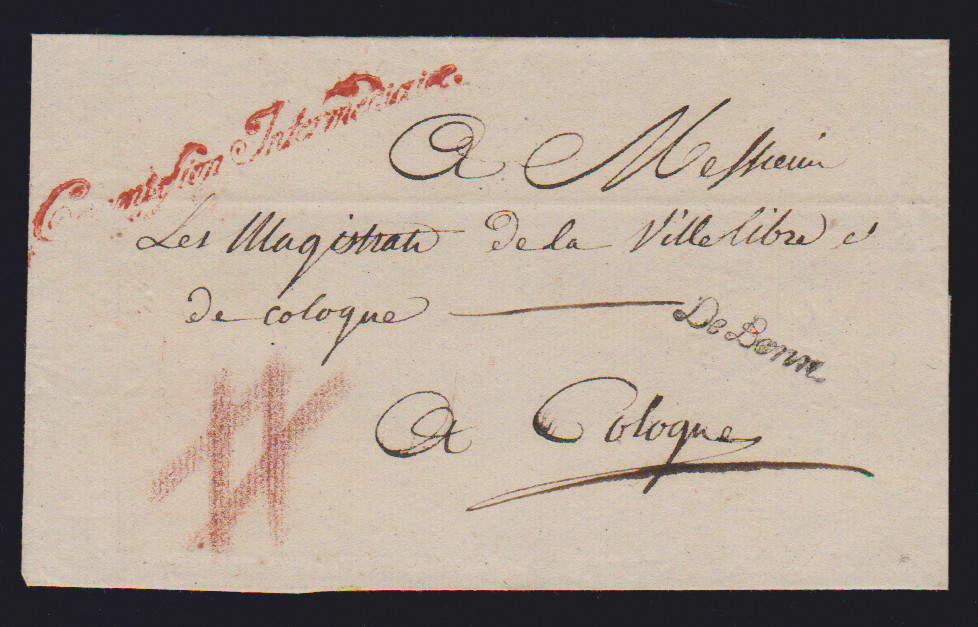 Commission Intermediaire.
A Messieurs
Les Magistrats de la Ville libre
de cologne
De Bonn
A Cologne